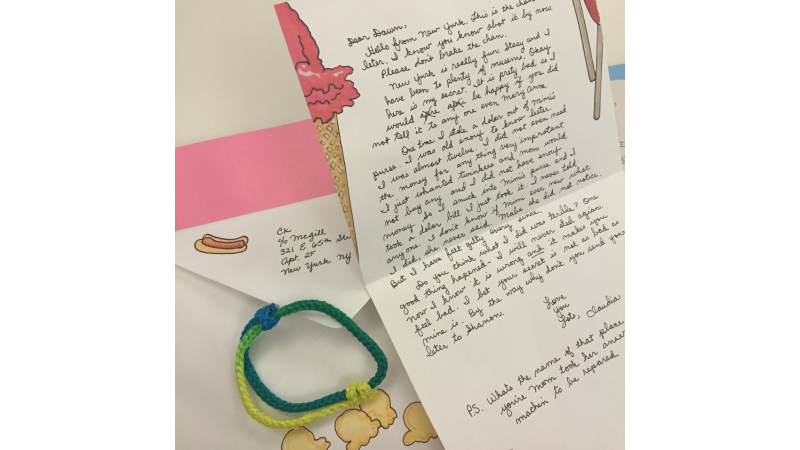 Dear Dawn,
Hello from New York. This is the chan
leter. I know you know abot it by now.
Please don't brake the chan.
New York is really fun. Stacy and I
have been to plenty of museums. Okay
here is my secret. It is pretty bad so I
would apre apre be happy if you did
not tell it to any one even Mary Anne.
One time I stole a doler out of Mimis
purse. I was old enouf to know beter.
I was almost twelve. I did not even need
the money for any thing very improtant.
I just whanted twinkees and mom would
not buy any and I did not have enouf
money. So I snuck into Mimis purse and I
took a doler bill I just took it. I never told
anyone. I don't know if Mimi ever new what
I did, she never said. Maybe she did not notice
But I have felt gilty every since.
Do you think what I did was terible? One
good thing hapened. I will never steel agian.
Now I know it is wrong and it makes you
feel bad. I bet your secret is not as bad as
mine is. By the way why don't you send your
leter to Shanon.
Love
You
Lots, Claudia
P.S. Whats the name of that place
you're Mom took her anser
machin to be repared
CK
c/o McGill
321 E 65th Str
Apt. 2F
New York NY